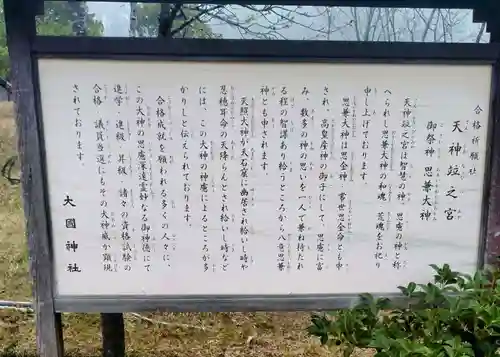 合格祈願社
天神垣之宮
御祭神 思兼大神
天神垣之宮は智慧の神、思慮の神と称
へられし思兼大神の和魂、荒魂をお祀り
申し上げております。
思兼大神は思金神、常世思金命とも申
され、高皇産神の御子にして、思慮に富
み、数多の神の思いを一人で兼ね持たれ
る程の智謀あり給うところから八意思兼
神とも申されます。
天照大神が天石窟に幽居され給いし時や
忍穂耳命の天降らんとされ給いし時など
には、この大神の神慮によるところが多
かりしと伝えられております。
合格成就を願われる多くの人々に、
この大神の思慮深遠霊妙なる御神徳にて
進学、進級、昇級、諸々の資格試験の
合格、議員当選にもその大神威が顕現
されております。
大國神社